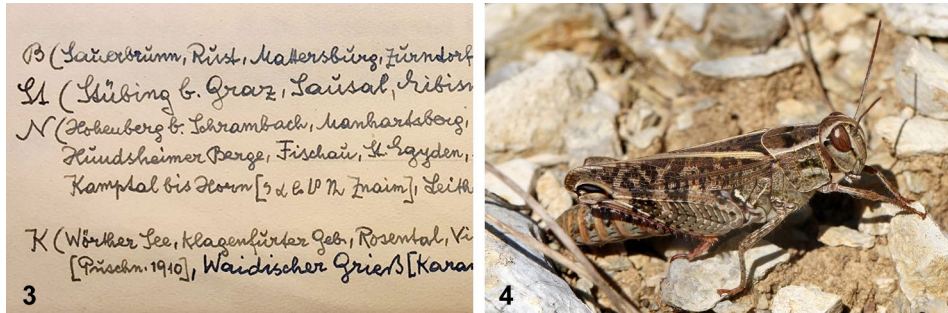 B (Sauerbrunn, Rust, Mattersburg, Zurndorf
St (Stübing b. Graz, Sausal, Eibisw
N (Hohenberg b. Schrambach, Manhartsberg,
Hundsheimer Berge, Fischau, St. Egyden,
Kamptal bis Horn [ Znaim], Leith
K (Wörther See, Klagenfurter Geb., Rosental, Vi
[Puschn. 1910], Waidischer Grieß [Karaw
3
4